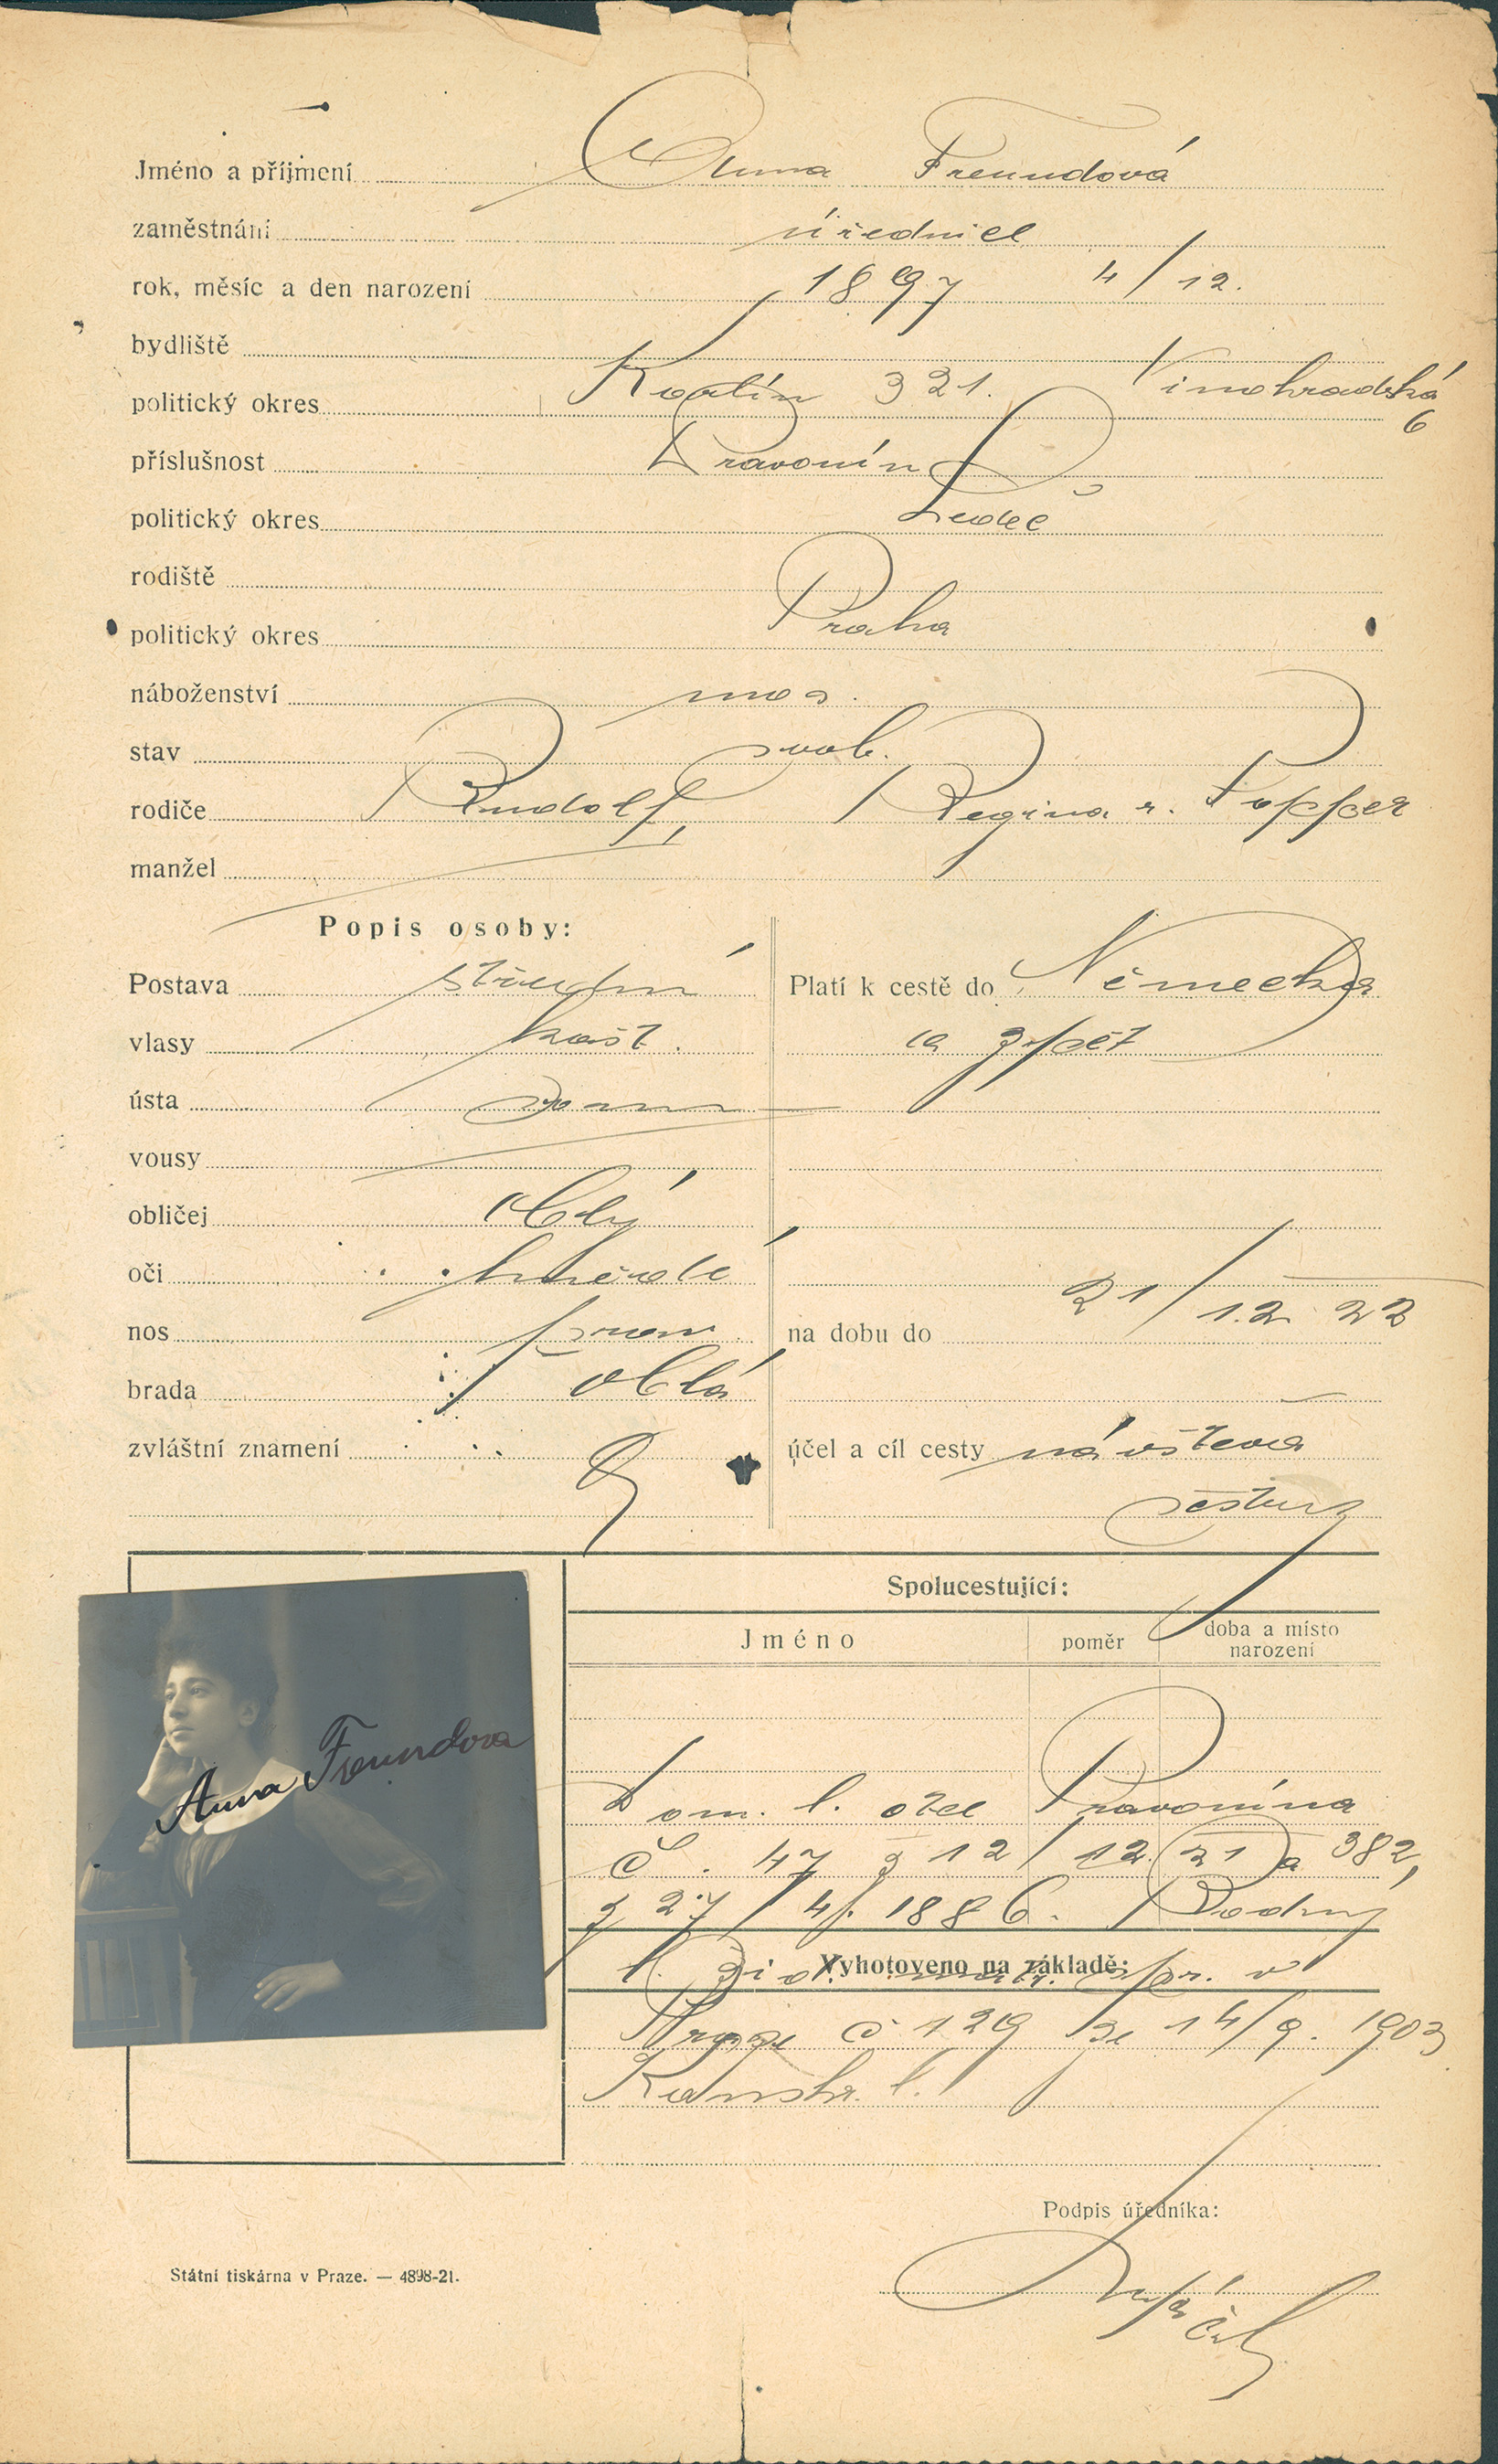 Jméno a příjmení Anna Freundová
zaměstnání úřednice
rok, měsíc a den narození 1897 4/12.
bydliště
politický okres Karlín 321. Vinohradská
6
příslušnost Pravonín
politický okres Ledeč
rodiště
politický okres Praha
náboženství mos.
stav svob.
rodiče Rudolf, Regina r. Popper
manžel
Popis osoby:
Postava střední
vlasy kašt.
ústa
vousy
obličej oblý
oči hnědé
nos
brada oblá
zvláštní znamení
Platí k cestě do Německa
a zpět
na dobu do 21/12 22
účel a cíl cesty návštěva
sestry
Spolucestující:
Jméno poměr doba a místo
narození
Anna Freundova
Dom. l. otce Pravonína
č. 47 z 12/12. 21 a 382,
z 27/4. 1886. Rodný
l. žid. matr. spr. v
Vyhotoveno na základě:
Praze č 129 ze 14/9. 1903
Podpis úředníka:
Státní tiskárna v Praze. — 4898-21.